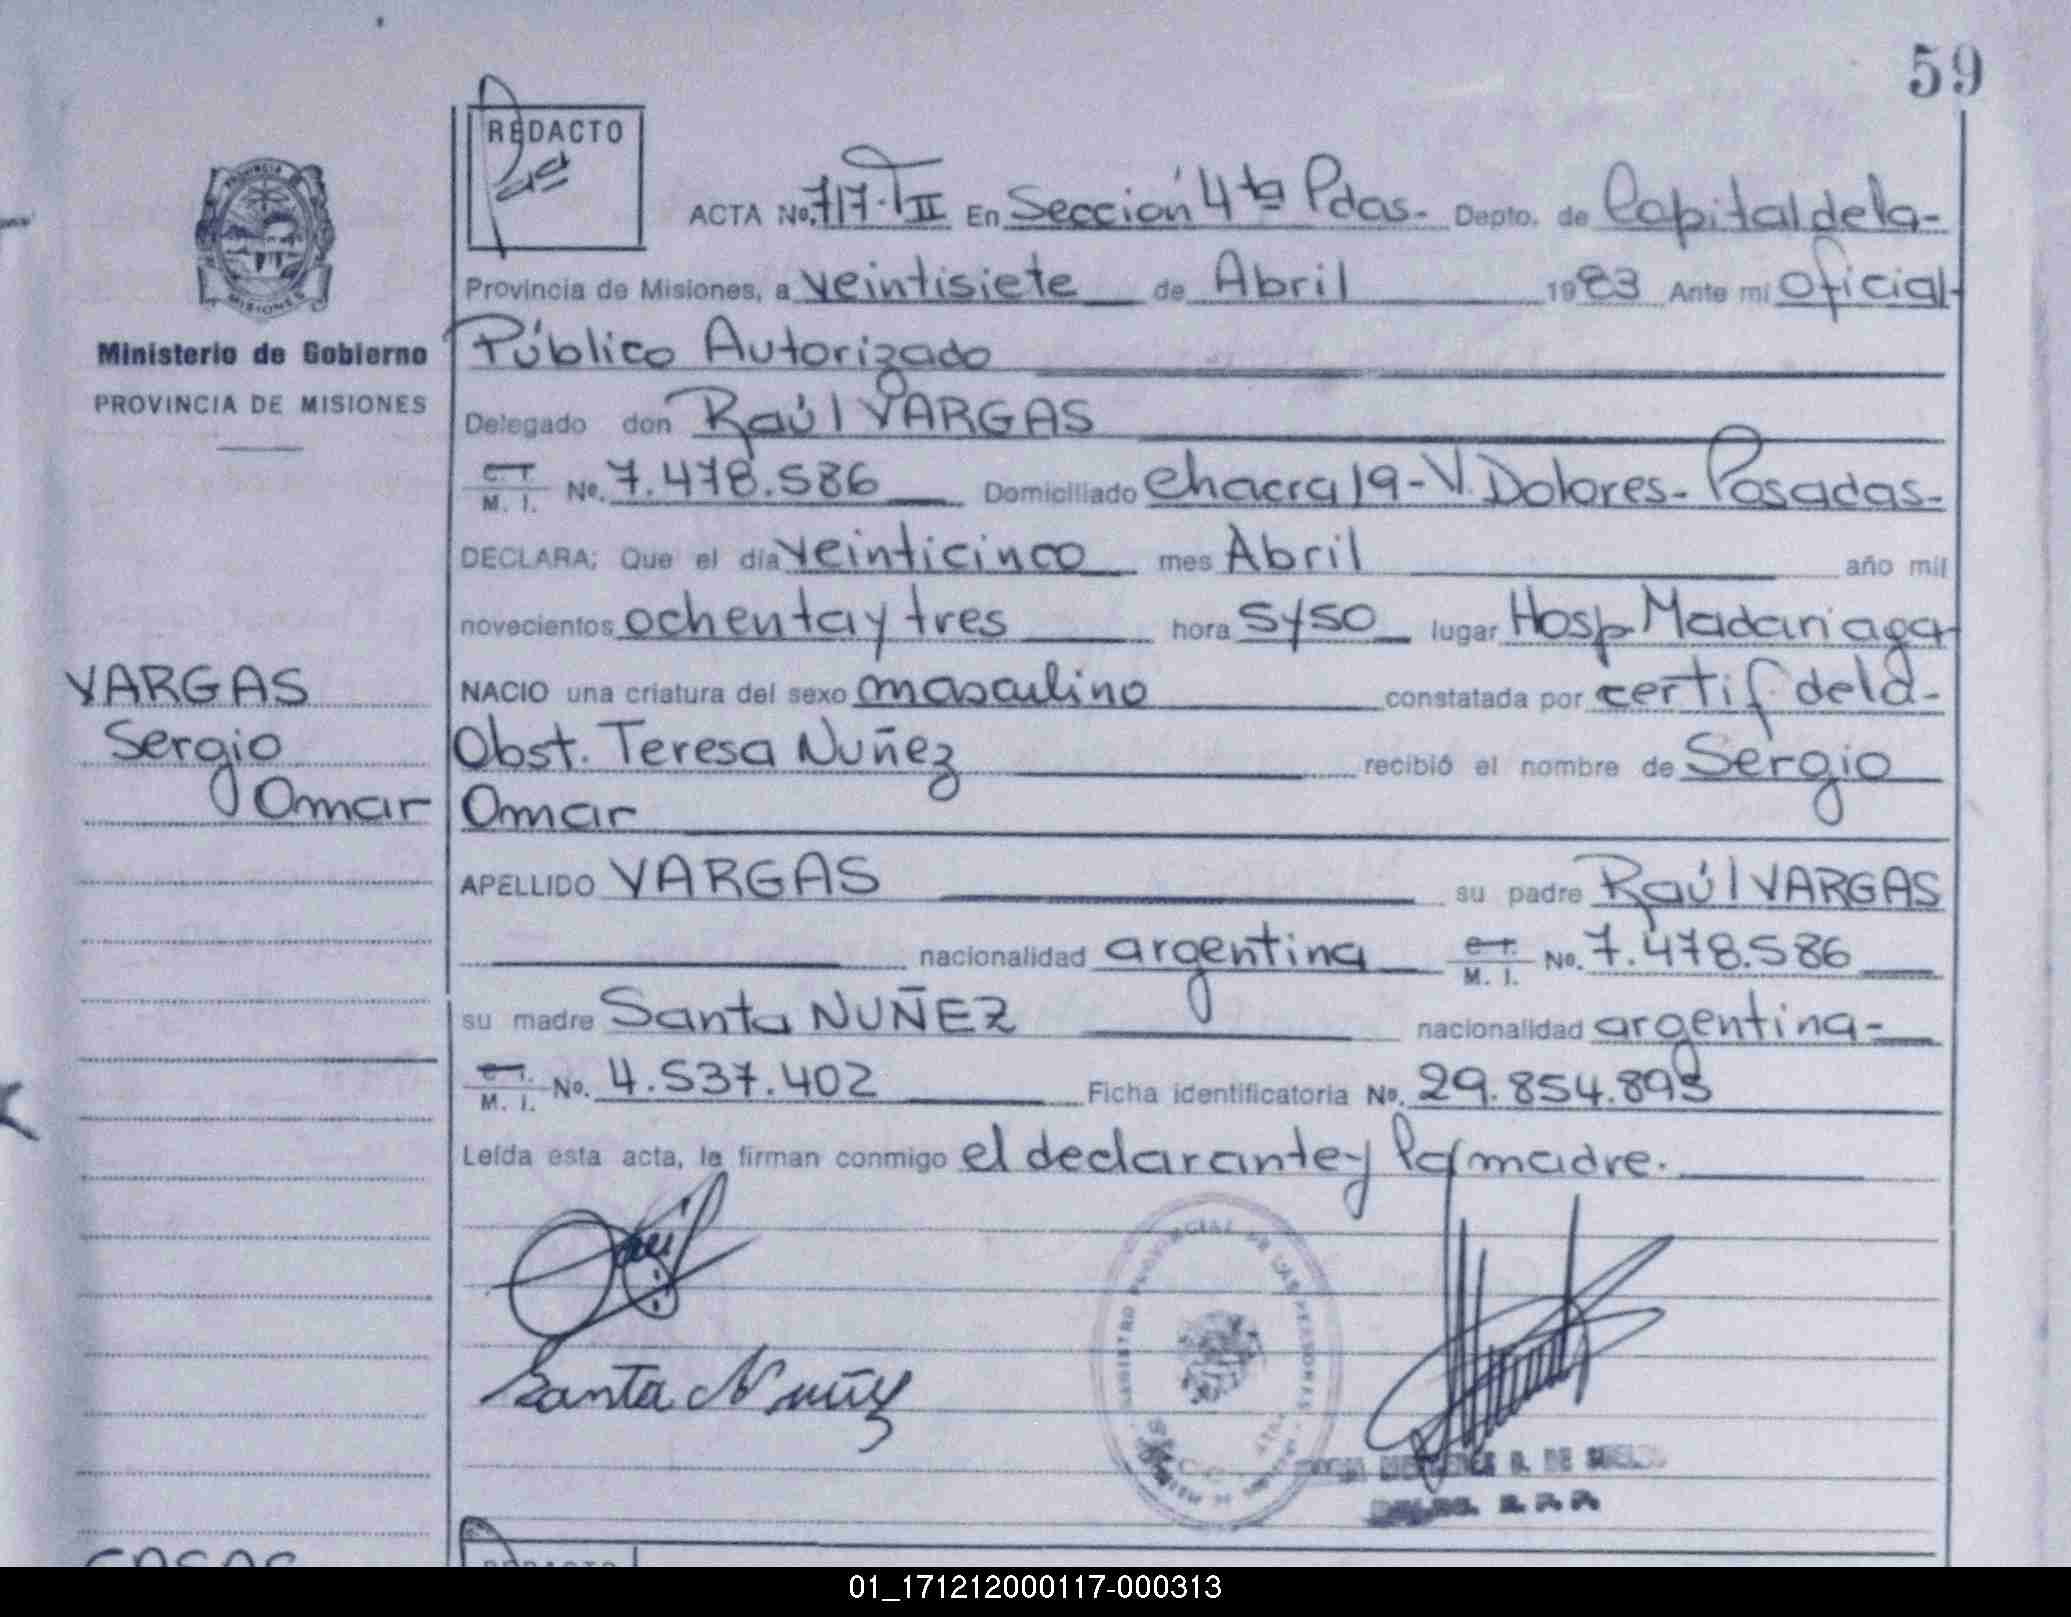 59
REDACTO
PROVINCIA DE
MISIONES
Ministerio de Gobierno
PROVINCIA DE MISIONES
ACTA No. 717-TII En Sección 4ta Pdas.- Depto. de Capital de la-
Provincia de Misiones, a veintisiete de Abril 1983 Ante mi oficial-
Público Autorizado
Delegado don Raúl VARGAS
C. I. M. I. No. 7.478.586 Domiciliado chacra 19-V. Dolores- Posadas-
DECLARA: Que el día veinticinco mes Abril año mil
novecientos ochenta y tres hora 5y50 lugar Hosp Madariaga-
VARGAS
Sergio
Omar
NACIO una criatura del sexo masculino constatada por certif de la-
Obst. Teresa Nuñez recibió el nombre de Sergio
Omar
APELLIDO VARGAS su padre Raúl VARGAS
nacionalidad argentina C. I. M. I. No. 7.478.586
su madre Santa NUÑEZ nacionalidad argentina-
C. I. M. I. No. 4.537.402 Ficha identificatoria No. 29.854.895
Leída esta acta, la firman conmigo el declarante y la madre.
Santa Nuñez
REGISTRO PROVINCIAL DE LAS PERSONAS
CASAS
REDACTO
01_171212000117-000313